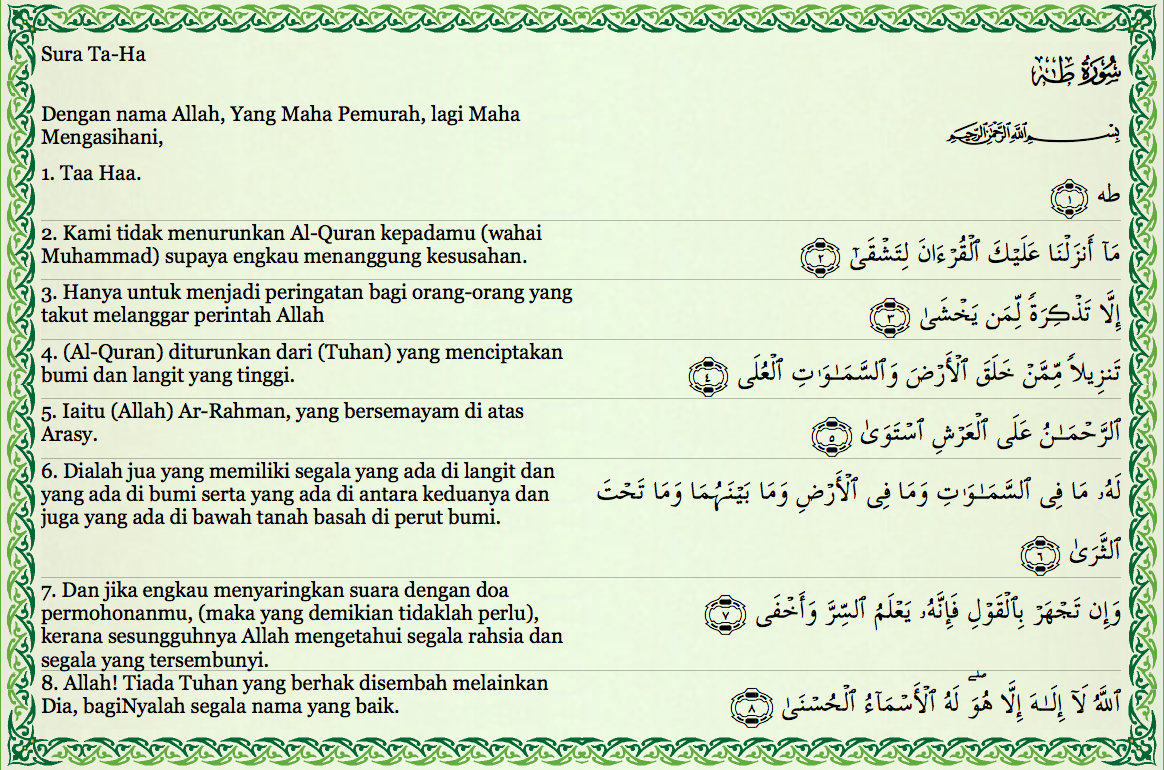 Sura Ta-Ha
سُورَةُ طه
Dengan nama Allah, Yang Maha Pemurah, lagi Maha
Mengasihani,
بِسْمِ ٱللَّهِ ٱلرَّحْمَٰنِ ٱلرَّحِيمِ
1. Taa Haa.
طه ١
2. Kami tidak menurunkan Al-Quran kepadamu (wahai
Muhammad) supaya engkau menanggung kesusahan.
مَآ أَنزَلْنَا عَلَيْكَ ٱلْقُرْءَانَ لِتَشْقَىٰٓ ٢
3. Hanya untuk menjadi peringatan bagi orang-orang yang
takut melanggar perintah Allah
إِلَّا تَذْكِرَةً لِّمَن يَخْشَىٰ ٣
4. (Al-Quran) diturunkan dari (Tuhan) yang menciptakan
bumi dan langit yang tinggi.
تَنزِيلاً مِّمَّنْ خَلَقَ ٱلْأَرْضَ وَٱلسَّمَـٰوَٰتِ ٱلْعُلَى ٤
5. Iaitu (Allah) Ar-Rahman, yang bersemayam di atas
Arasy.
ٱلرَّحْمَـٰنُ عَلَى ٱلْعَرْشِ ٱسْتَوَىٰ ٥
6. Dialah jua yang memiliki segala yang ada di langit dan
yang ada di bumi serta yang ada di antara keduanya dan
juga yang ada di bawah tanah basah di perut bumi.
لَهُۥ مَا فِى ٱلسَّمَـٰوَٰتِ وَمَا فِى ٱلْأَرْضِ وَمَا بَيْنَهُمَا وَمَا تَحْتَ
ٱلثَّرَىٰ ٦
7. Dan jika engkau menyaringkan suara dengan doa
permohonanmu, (maka yang demikian tidaklah perlu),
kerana sesungguhnya Allah mengetahui segala rahsia dan
segala yang tersembunyi.
وَإِن تَجْهَرْ بِٱلْقَوْلِ فَإِنَّهُۥ يَعْلَمُ ٱلسِّرَّ وَأَخْفَى ٧
8. Allah! Tiada Tuhan yang berhak disembah melainkan
Dia, bagiNyalah segala nama yang baik.
ٱللَّهُ لَآ إِلَـٰهَ إِلَّا هُوَ ۖ لَهُ ٱلْأَسْمَآءُ ٱلْحُسْنَىٰ ٨